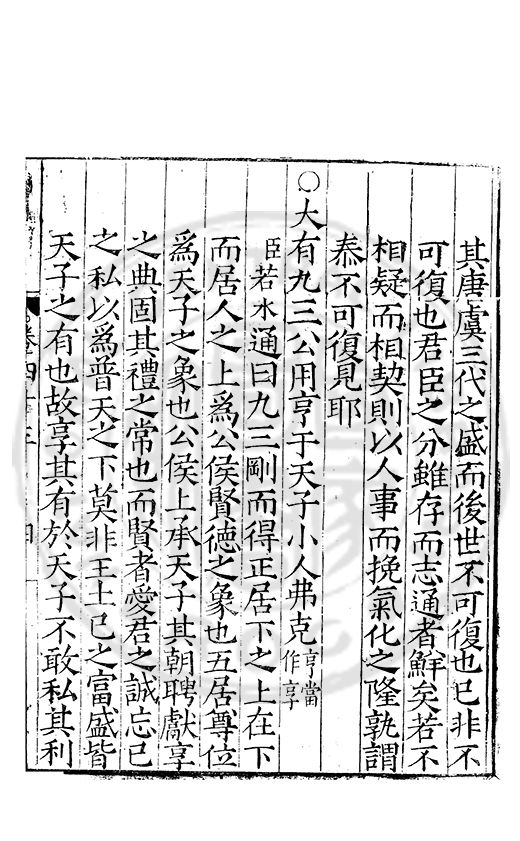 其唐虞三代之盛而後世不可復也已非不
可復也君臣之分雖存而志通者鮮矣若不
相疑而相契則以人事而挽氣化之隆孰謂
泰不可復見耶
○大有九三公用亨于天子小人弗克亨當作享
臣若水通曰九三剛而得正居下之上在下
而居人之上爲公侯賢德之象也五居尊位
爲天子之象也公侯上承天子其朝聘獻享
之典固其禮之常也而賢者愛君之誠忘己
之私以爲普天之下莫非王土已之富盛皆
天子之有也故享其有於天子不敢私其利